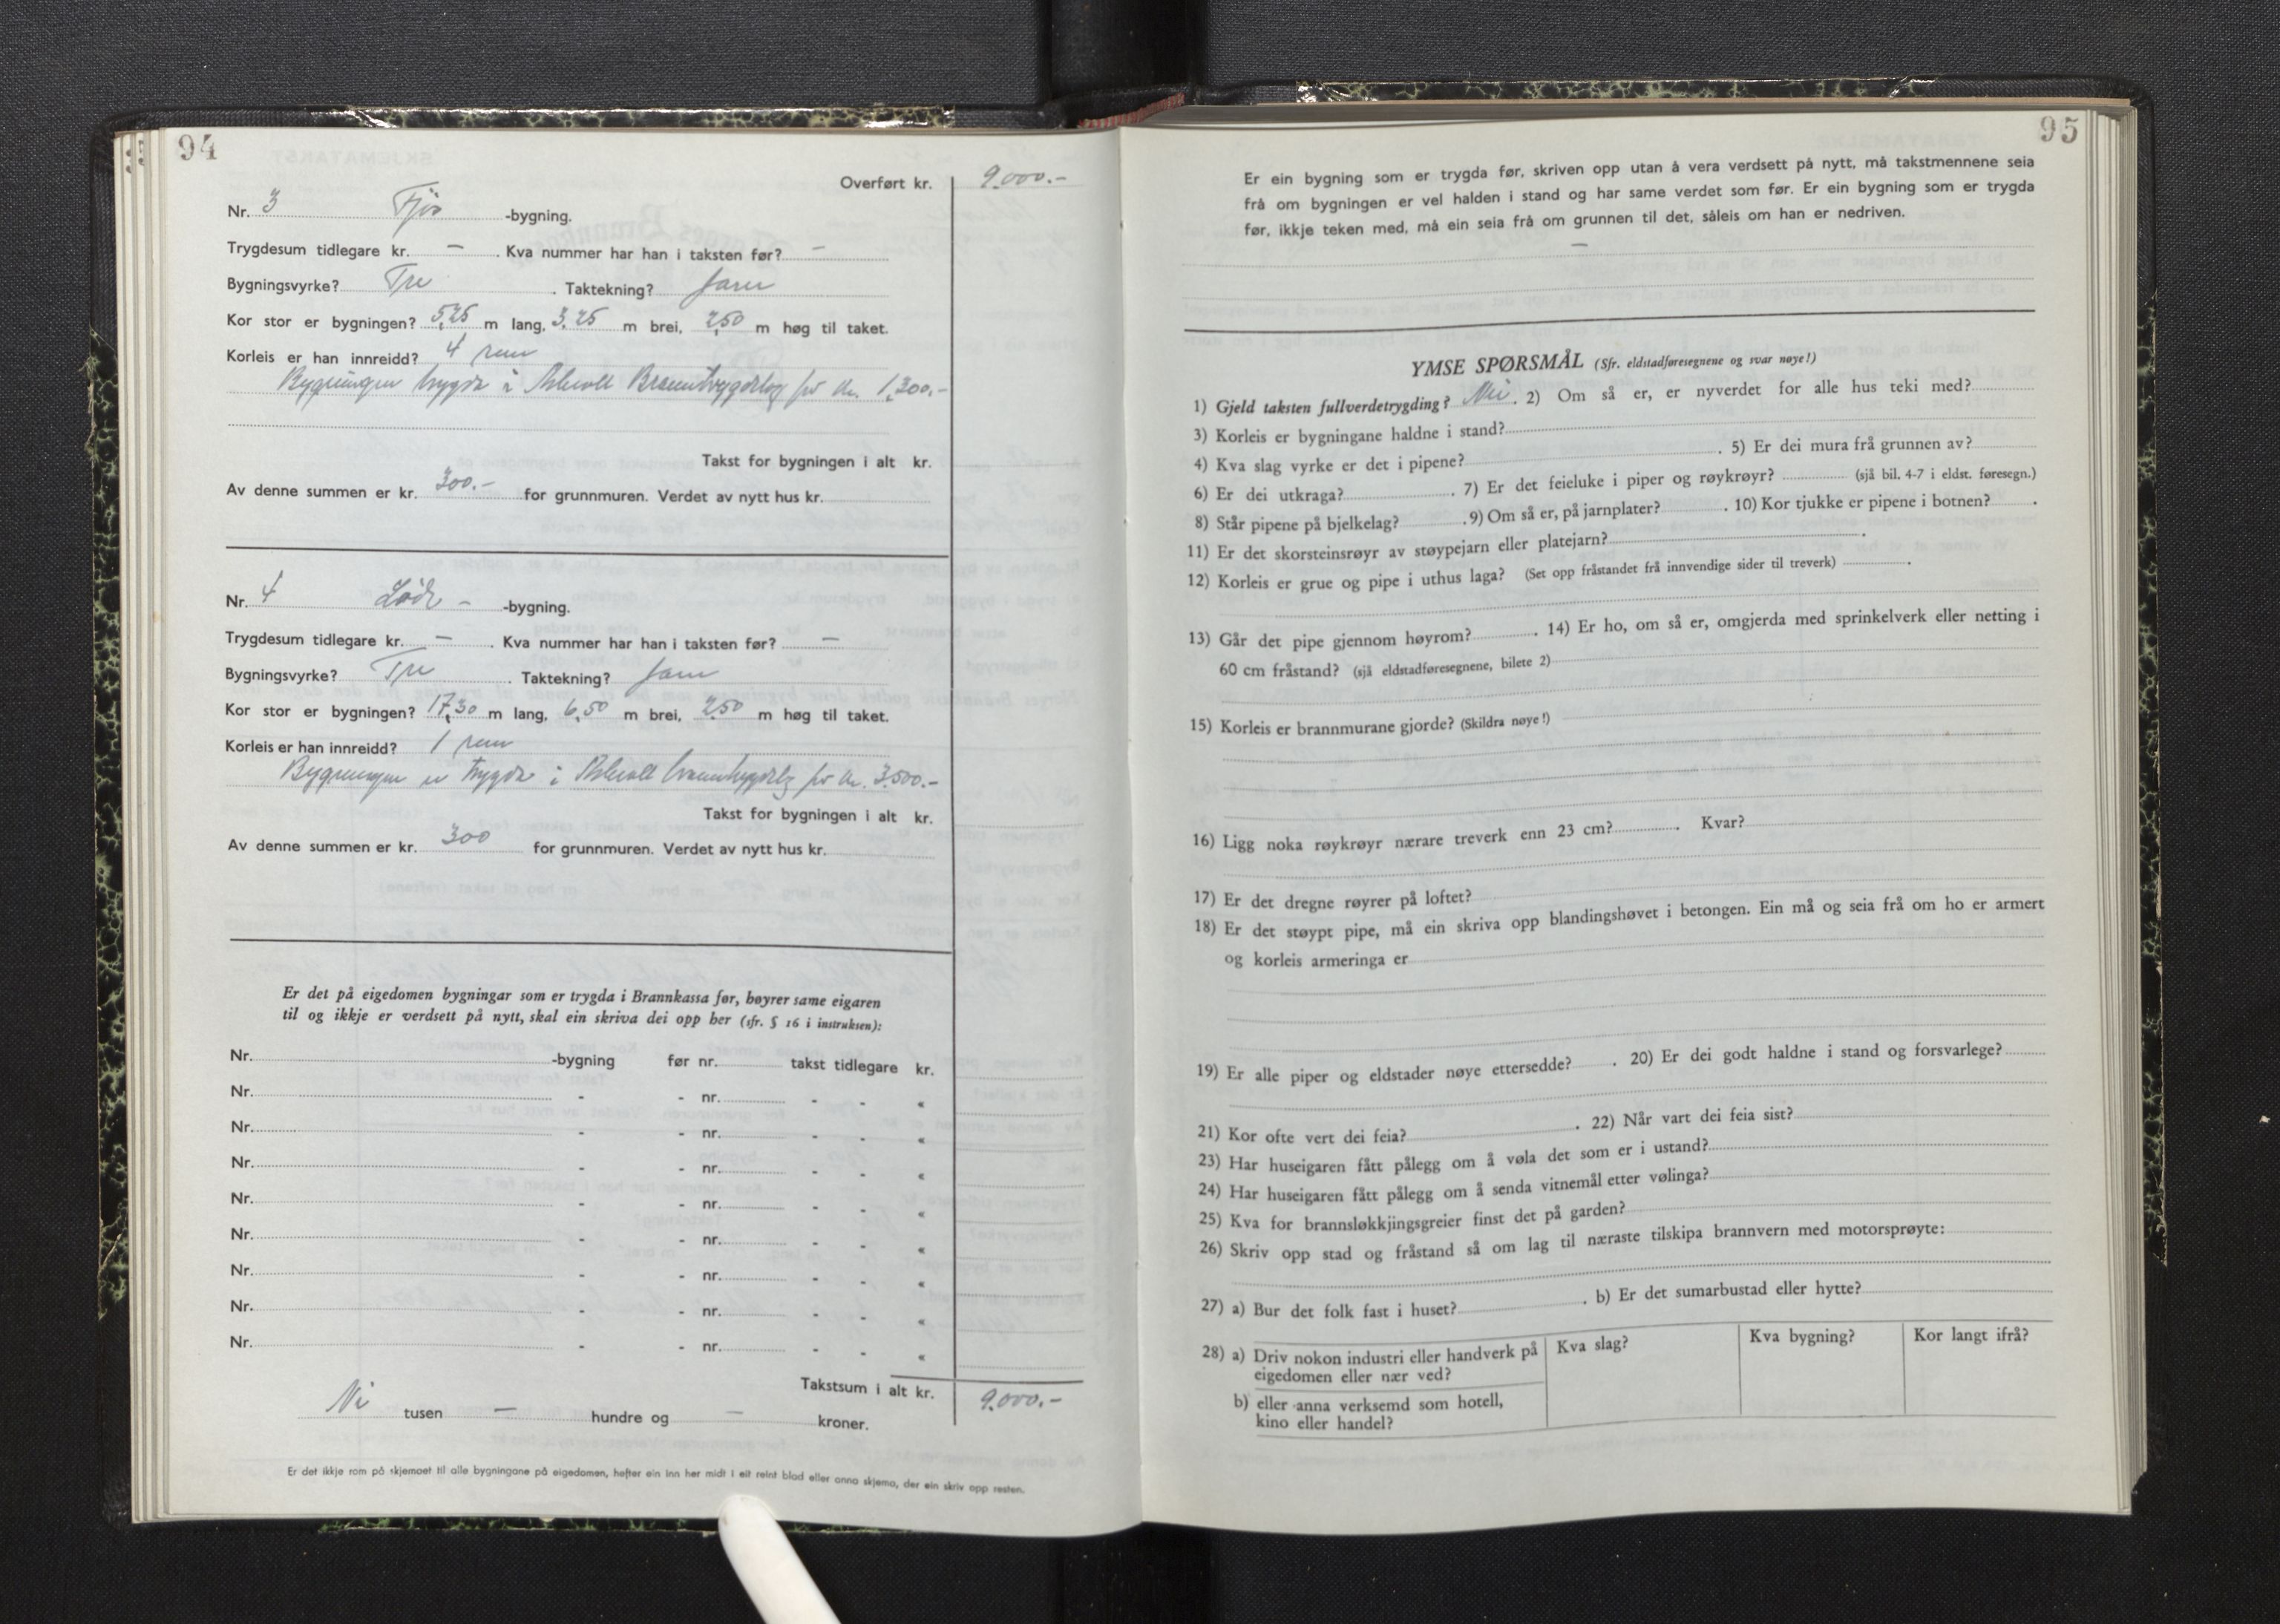 94
Overført kr. 9.000.-
Nr. 3 Fjøs -bygning.
Trygdesum tidlegare kr. — . Kva nummer har han i taksten før? —
Bygningsvyrke? Tre . Taktekning? Jarn
Kor stor er bygningen? 5,25 m lang, 3,25 m brei, 2,50 m høg til taket.
Korleis er han innreidd? 4 rum
Bygningen trygda i Branntrygdelag for kr. 1.300.-
Takst for bygningen i alt kr.
Av denne summen er kr. 300.- for grunnmuren. Verdet av nytt hus kr.
Nr. 4 Løde - -bygning.
Trygdesum tidlegare kr. — . Kva nummer har han i taksten før? —
Bygningsvyrke? Tre . Taktekning? Jarn
Kor stor er bygningen? 17,30 m lang, 6,50 m brei, 2,50 m høg til taket.
Korleis er han innreidd? 1 rum
Bygningen er trygda i branntrygdelag for kr. 3.500.-
Takst for bygningen i alt kr.
Av denne summen er kr. 300 for grunnmuren. Verdet av nytt hus kr.
Er det på eigedomen bygningar som er trygda i Brannkassa før, høyrer same eigaren
til og ikkje er verdsett på nytt, skal ein skriva dei opp her (sfr. § 16 i instruksen):
Nr. -bygning før nr. takst tidlegare kr.
Nr. - - nr. - - «
Nr. - - nr. - - «
Nr. - - nr. - - «
Nr. - - nr. - - «
Nr. - - nr. - - «
Nr. - - nr. - - «
Nr. - - nr. - - «
Nr. - - nr. - - «
Takstsum i alt kr. 9.000.-
Ni tusen — hundre og — kroner.
Er det ikkje rom på skjemaet til alle bygningane på eigedomen, hefter ein inn her midt i eit reint blad eller anna skjema, der ein skriv opp resten.
95
Er ein bygning som er trygda før, skriven opp utan å vera verdsett på nytt, må takstmennene seia
frå om bygningen er vel halden i stand og har same verdet som før. Er ein bygning som er trygda
før, ikkje teken med, må ein seia frå om grunnen til det, såleis om han er nedriven.
—
YMSE SPØRSMÅL (Sfr. eldstadføresegnene og svar nøye!)
1) Gjeld taksten fullverdetrygding? Nei . 2) Om så er, er nyverdet for alle hus teki med?
3) Korleis er bygningane haldne i stand?
4) Kva slag vyrke er det i pipene? . 5) Er dei mura frå grunnen av?
6) Er dei utkraga? . 7) Er det feieluke i piper og røykrøyr? (sjå bil. 4-7 i eldst. føresegn.)
8) Står pipene på bjelkelag? . 9) Om så er, på jarnplater? . 10) Kor tjukke er pipene i botnen? .
11) Er det skorsteinsrøyr av støypejarn eller platejarn? .
12) Korleis er grue og pipe i uthus laga? (Set opp fråstandet frå innvendige sider til treverk) .
13) Går det pipe gjennom høyrom? . 14) Er ho, om så er, omgjerda med sprinkelverk eller netting i
60 cm fråstand? (sjå eldstadføresegnene, bilete 2)
15) Korleis er brannmurane gjorde? (Skildra nøye!)
16) Ligg noka røykrøyr nærare treverk enn 23 cm? . Kvar?
17) Er det dregne røyrer på loftet?
18) Er det støypt pipe, må ein skriva opp blandingshøvet i betongen. Ein må og seia frå om ho er armert
og korleis armeringa er
19) Er alle piper og eldstader nøye ettersedde? . 20) Er dei godt haldne i stand og forsvarlege?
21) Kor ofte vert dei feia? . 22) Når vart dei feia sist?
23) Har huseigaren fått pålegg om å vøla det som er i ustand?
24) Har huseigaren fått pålegg om å senda vitnemål etter vølinga?
25) Kva for brannsløkkjingsgreier finst det på garden?
26) Skriv opp stad og fråstand så om lag til næraste tilskipa brannvern med motorsprøyte:
27) a) Bur det folk fast i huset? . b) Er det sumarbustad eller hytte?
28) a) Driv nokon industri eller handverk på Kva slag? Kva bygning? Kor langt ifrå?
eigedomen eller nær ved?
b) eller anna verksemd som hotell,
kino eller handel?